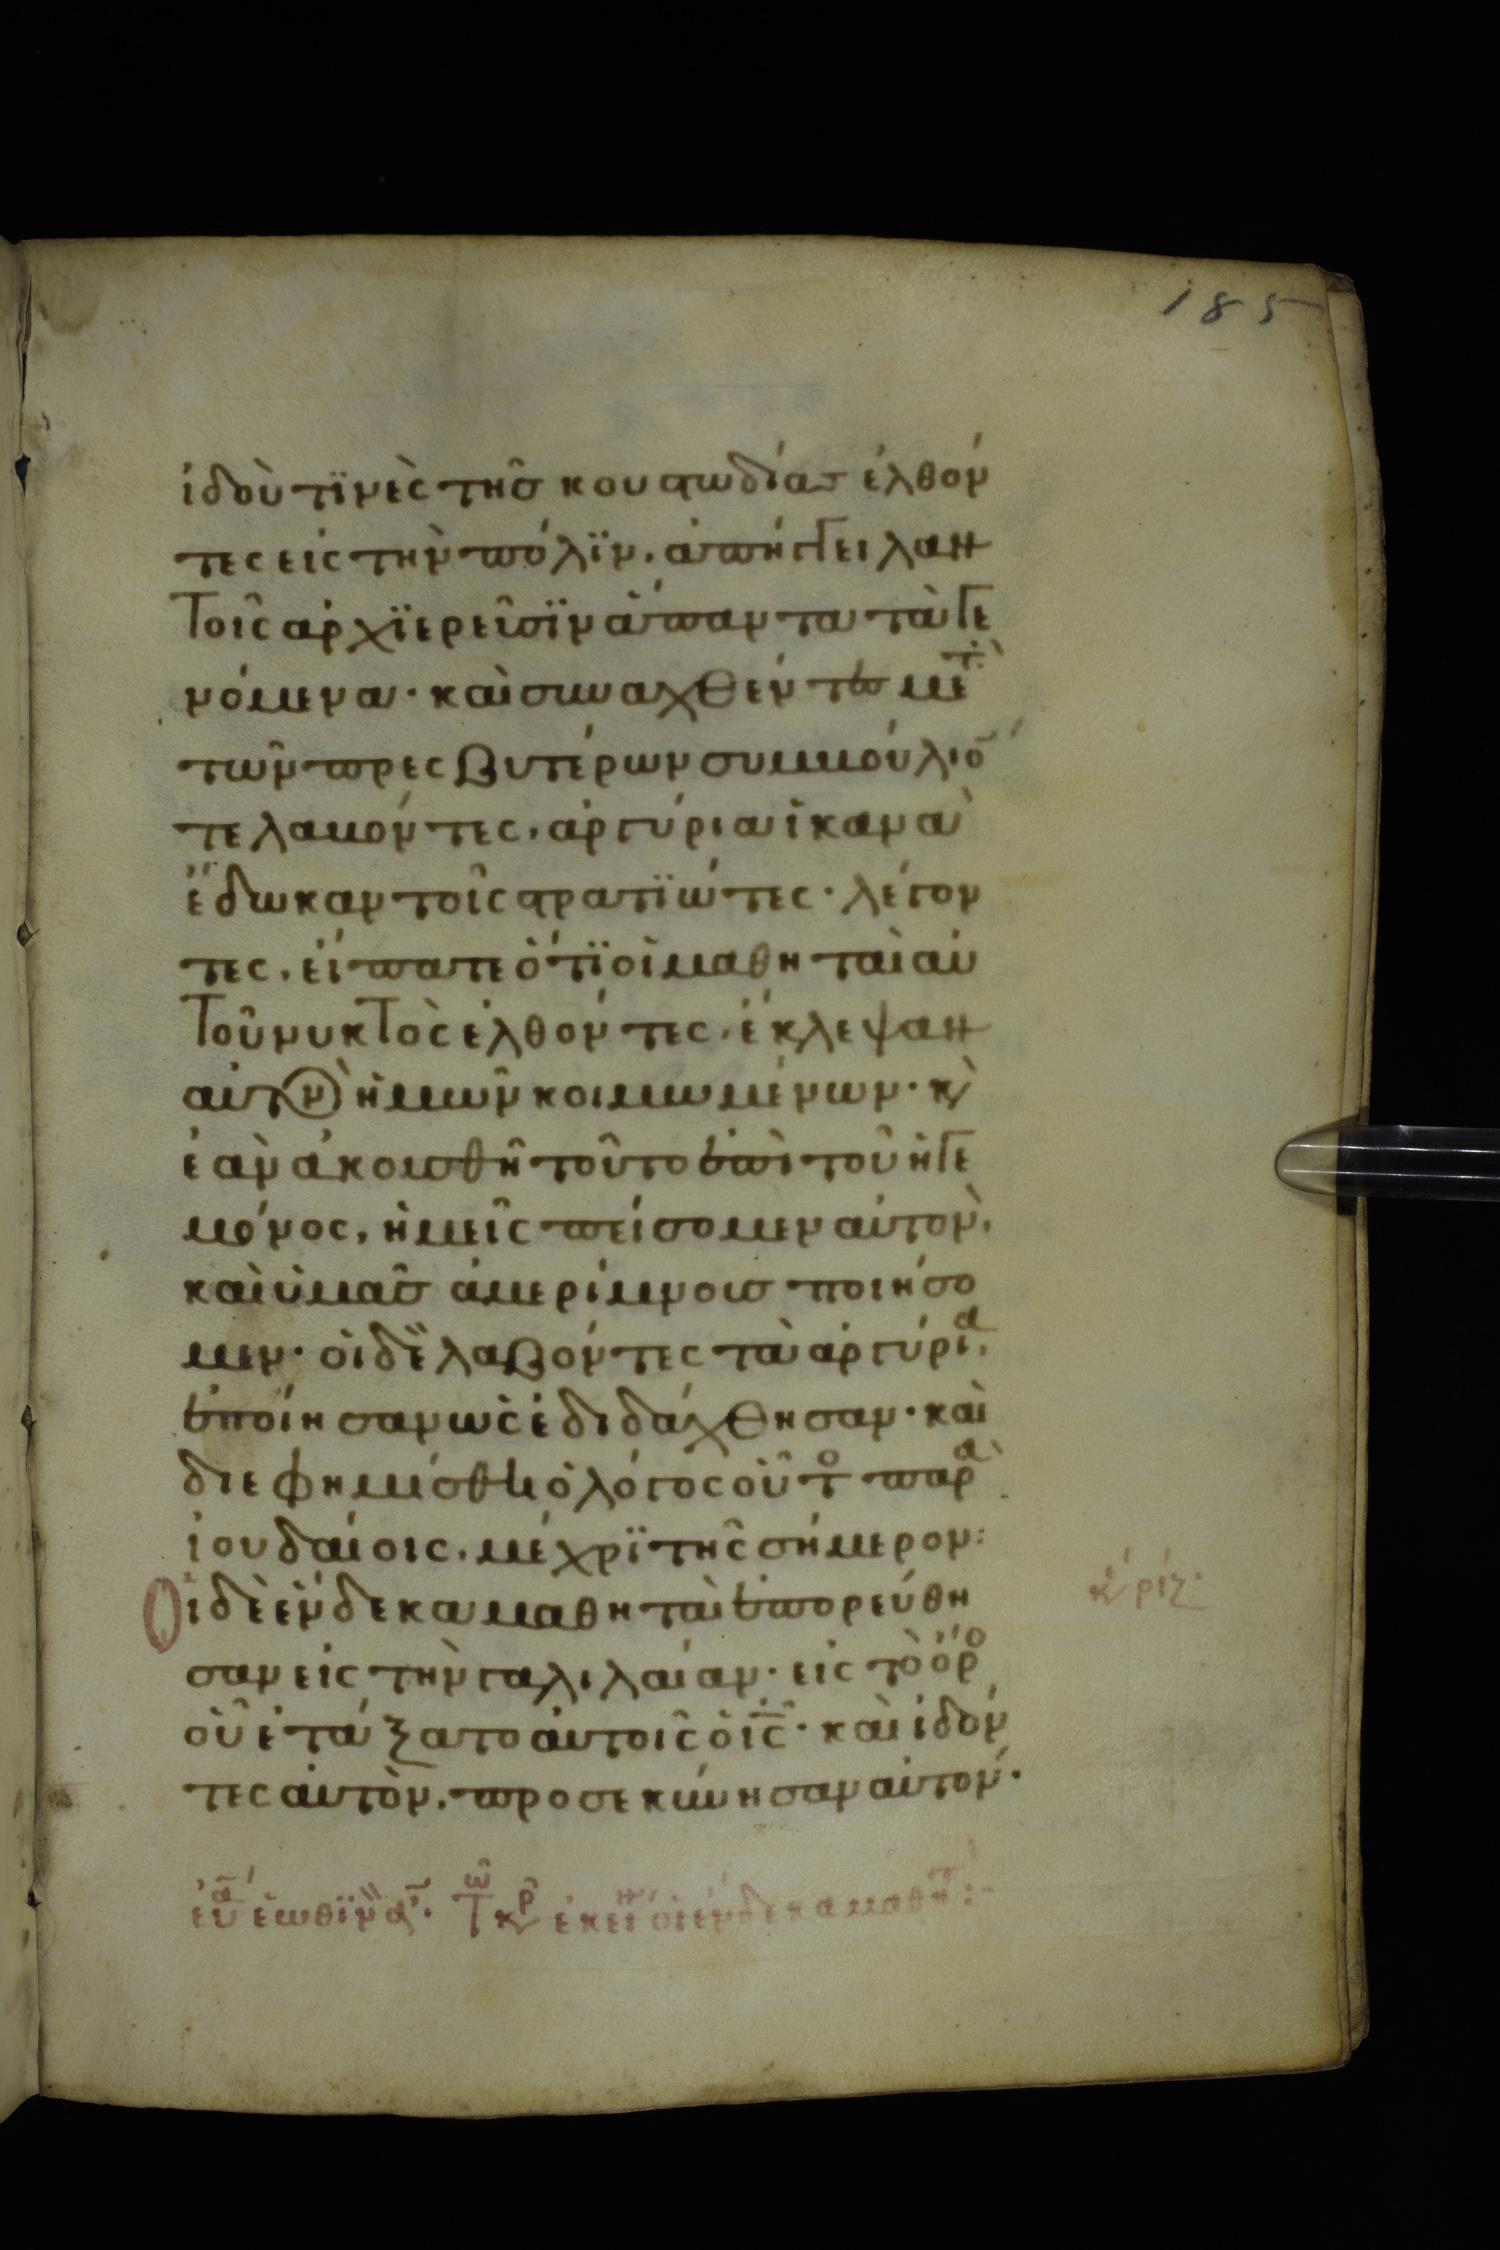 185
ἰδοὺ τϊνὲς τῆς κουστωδίας ἐλθόν
τες εἰς τὴν πόλϊν. ἀπήστειλαν
τοῖς ἀρχϊερεῦσϊν ἅπαντα τὰ γε
νόμενα· καὶ συναχθέντες μετὰ
τῶν πρεσβυτέρων συμβούλιόν
τε λαβόντες, ἀργύρια ἱκανὰ
ἔδωκαν τοῖς στρατϊώτες· λέγον
τες, εἴπατε ὅτϊ οἱ μαθηταὶ αὐ
τοῦ νυκτὸς ἐλθόντες. ἔκλεψαν
αὐτὸν ἡμῶν κοιμωμένων· κὶ
ἐὰν ἀκουσθῆ τοῦτο ἐπὶ τοῦ ἡγε
μόνος, ἡμεῖς πείσομεν αὐτὸν.
καὶ ὑμᾶς ἀμερίμνους ποιήσο
μεν· οἱ δὲ λαβόντες τὰ ἀργύρια,
ἐποίησαν ὡς ἐδιδάχθησαν· καὶ
διεφημίσθη ὁ λόγος οὗτος παρὰ
ἰουδαίοις. μέχρϊ τῆς σήμερον:
Οἱ δὲ ἕνδεκα μαθηταὶ ἐπορεύθη
σαν εἰς τὴν γαλιλαίαν· εἰς τὸ ὄρος
οὗ ἐτάξατο αὐτοῖς ὁ ις̅· καὶ ἰδόν
τες αὐτὸν. προσεκύνησαν αὐτόν·
ἑωθϊνὸν α·
οἱ ἕνδεκα μαθητ: